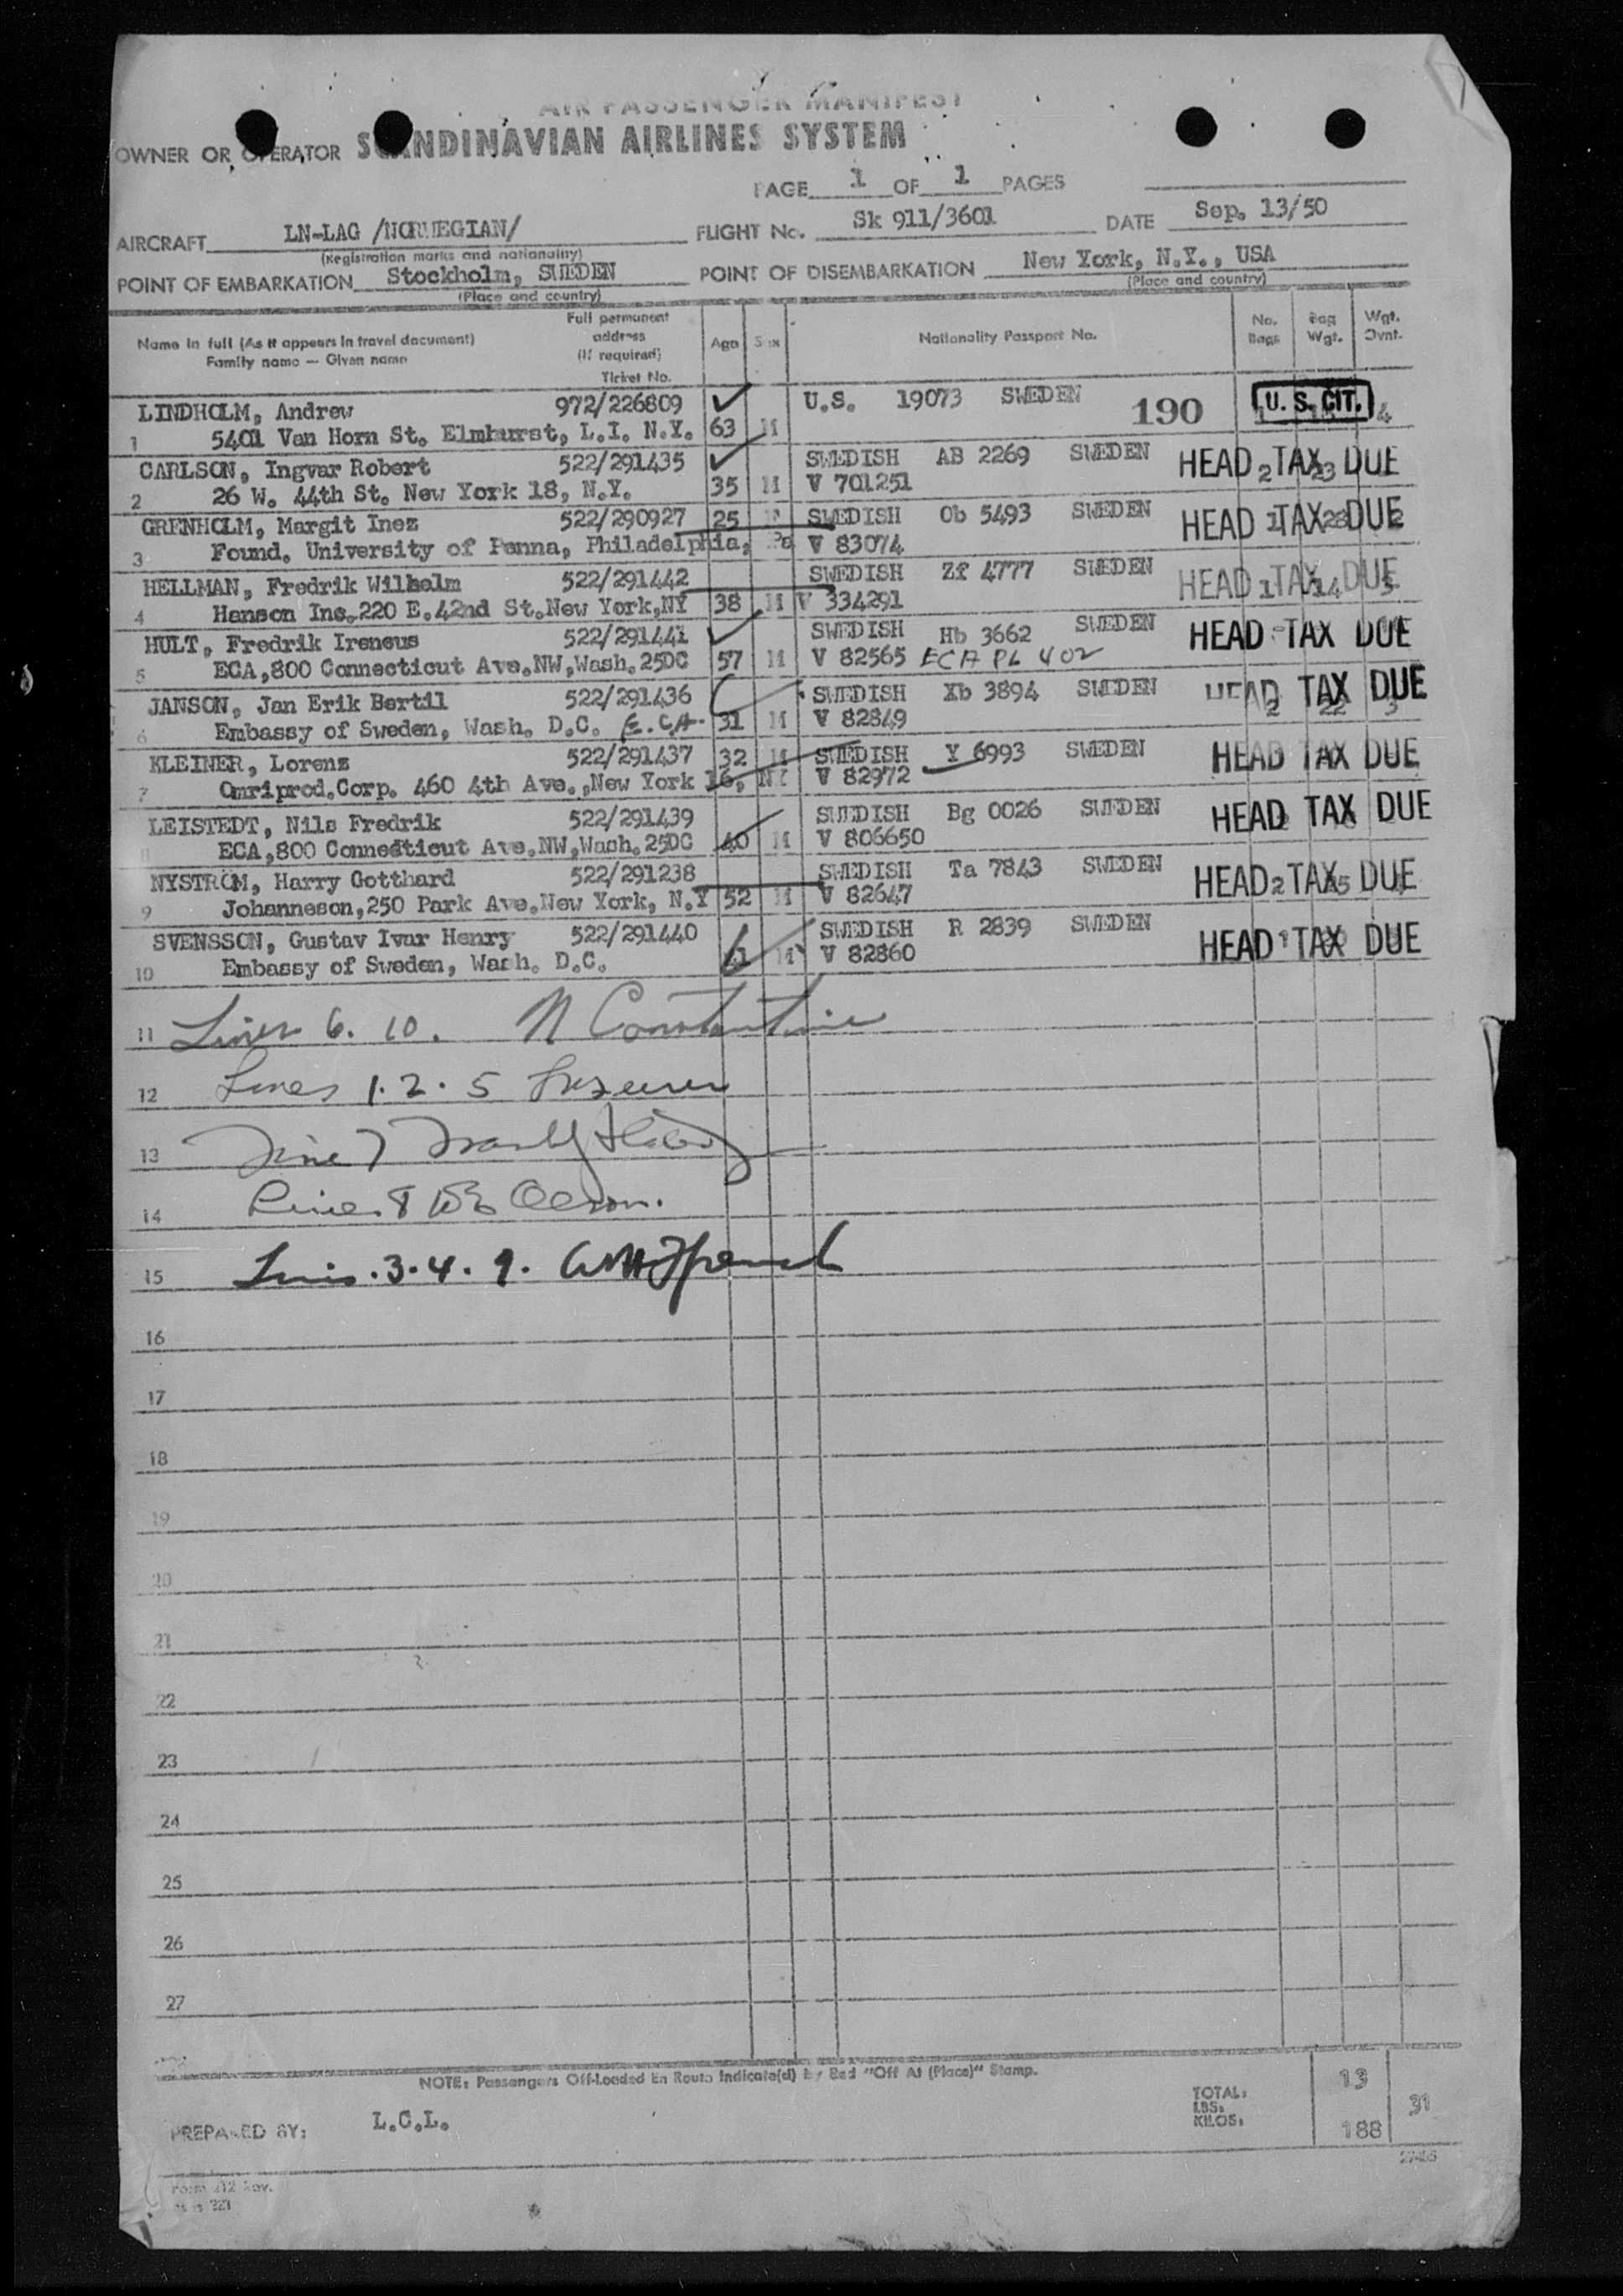 AIR PASSENGER MANIFEST
OWNER OR OPERATOR SCANDINAVIAN AIRLINES SYSTEM
PAGE 1 OF 1 PAGES
AIRCRAFT LN-LAG /NORWEGIAN/ FLIGHT No. Sk 911/3601 DATE Sep. 13/50
(Registration marks and nationality)
POINT OF EMBARKATION Stockholm, SWEDEN POINT OF DISEMBARKATION New York, N.Y., USA
(Place and country) (Place and country)
Name in full (As it appears in travel document) Full permanent address Age Sex Nationality Passport No. No. Bags Bag Wgt. Wgt. Ovnt.
Family name — Given name (If required)
Ticket No.
LINDHOLM, Andrew 972/226809 U.S. 19073 SWEDEN 190 U. S. CIT. 4
1 5401 Van Horn St. Elmhurst, L.I. N.Y. 63 M
CARLSON, Ingvar Robert 522/291435 SWEDISH AB 2269 SWEDEN HEAD TAX DUE 2 23
2 26 W. 44th St. New York 18, N.Y. 35 M V 701251
GRENHOLM, Margit Inez 522/290927 25 F SWEDISH Ob 5493 SWEDEN HEAD TAX DUE 1 28 2
3 Found. University of Penna, Philadelphia, Pa V 83074
HELLMAN, Fredrik Wilhelm 522/291442 SWEDISH Zf 4777 SWEDEN HEAD TAX DUE 1 14 3
4 Hanson Inc. 220 E. 42nd St. New York, NY 38 M V 334291
HULT, Fredrik Ireneus 522/291441 SWEDISH Hb 3662 SWEDEN HEAD TAX DUE
5 ECA, 800 Connecticut Ave. NW, Wash. 25DC 57 M V 82565 ECA PL 402
JANSON, Jan Erik Bertil 522/291436 SWEDISH Xb 3894 SWEDEN HEAD TAX DUE 2 22 3
6 Embassy of Sweden, Wash. D.C. E.C.A. 31 M V 82849
KLEINER, Lorenz 522/291437 32 M SWEDISH Y 6993 SWEDEN HEAD TAX DUE
7 Omriprod. Corp. 460 4th Ave., New York 16, NY V 82972
LEISTEDT, Nils Fredrik 522/291439 SWEDISH Bg 0026 SWEDEN HEAD TAX DUE
8 ECA, 800 Connecticut Ave. NW, Wash. 25DC 40 M V 806650
NYSTRÖM, Harry Gotthard 522/291238 SWEDISH Ta 7843 SWEDEN HEAD TAX DUE 2
9 Johanneson, 250 Park Ave. New York, N.Y 52 M V 82647
SVENSSON, Gustav Ivar Henry 522/291440 SWEDISH R 2839 SWEDEN HEAD TAX DUE 1
10 Embassy of Sweden, Wash. D.C. M V 82860
11 Lines 6. 10. N Constantine
12 Lines 1. 2. 5
13 Line 7
14 Line 8
15 Lines. 3. 4. 9.
16
17
18
19
20
21
22
23
24
25
26
27
NOTE: Passengers Off-Loaded En Route Indicate(d) by Red "Off At (Place)" Stamp.
TOTAL: 13
LBS. 31
KILOS: 188
PREPARED BY: L.C.L.
Form 212 Rev.